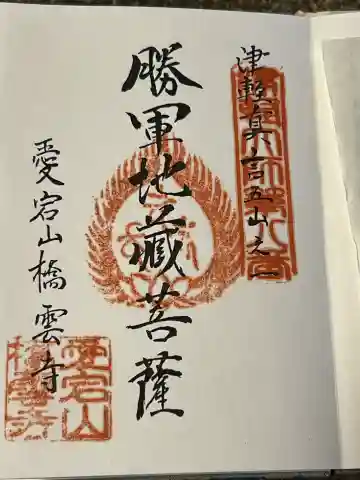 津軽真言五山之一
勝軍地蔵菩薩
愛宕山橋雲寺
愛宕山
橋雲寺